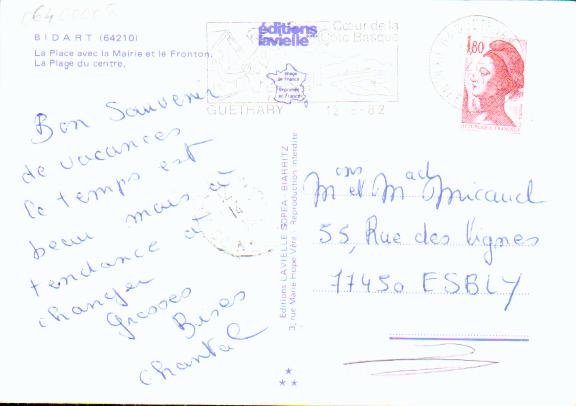 BIDART (64210)
La Place avec la Mairie et le Fronton.
La Plage du centre.
éditions
lavielle
Image
de France
Imprimée
en France
Cœur de la
Côte Basque
GUETHARY 12-8-82
1,80
REPUBLIQUE FRANÇAISE
Bon Souvenir
de vacances
le temps est
beau mais à
tendance à
changer
Grosses
Bises
Chantal
Editions LAVIELLE SOPEA - BIARRITZ
3, rue Marie Hope Vère - Reproduction interdite
55, Rue des Vignes
77450 ESBLY